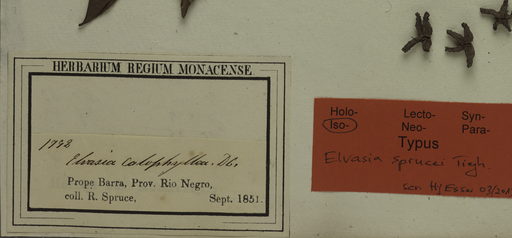 HERBARIUM REGIUM MONACENSE
1732
Elvasia calophylla. DC.
Prope Barra, Prov. Rio Negro,
coll. R. Spruce, Sept. 1851.
Holo- Lecto- Syn-
Iso- Neo- Para-
Typus
Elvasia sprucei Tiegh.
scr. H/Esser